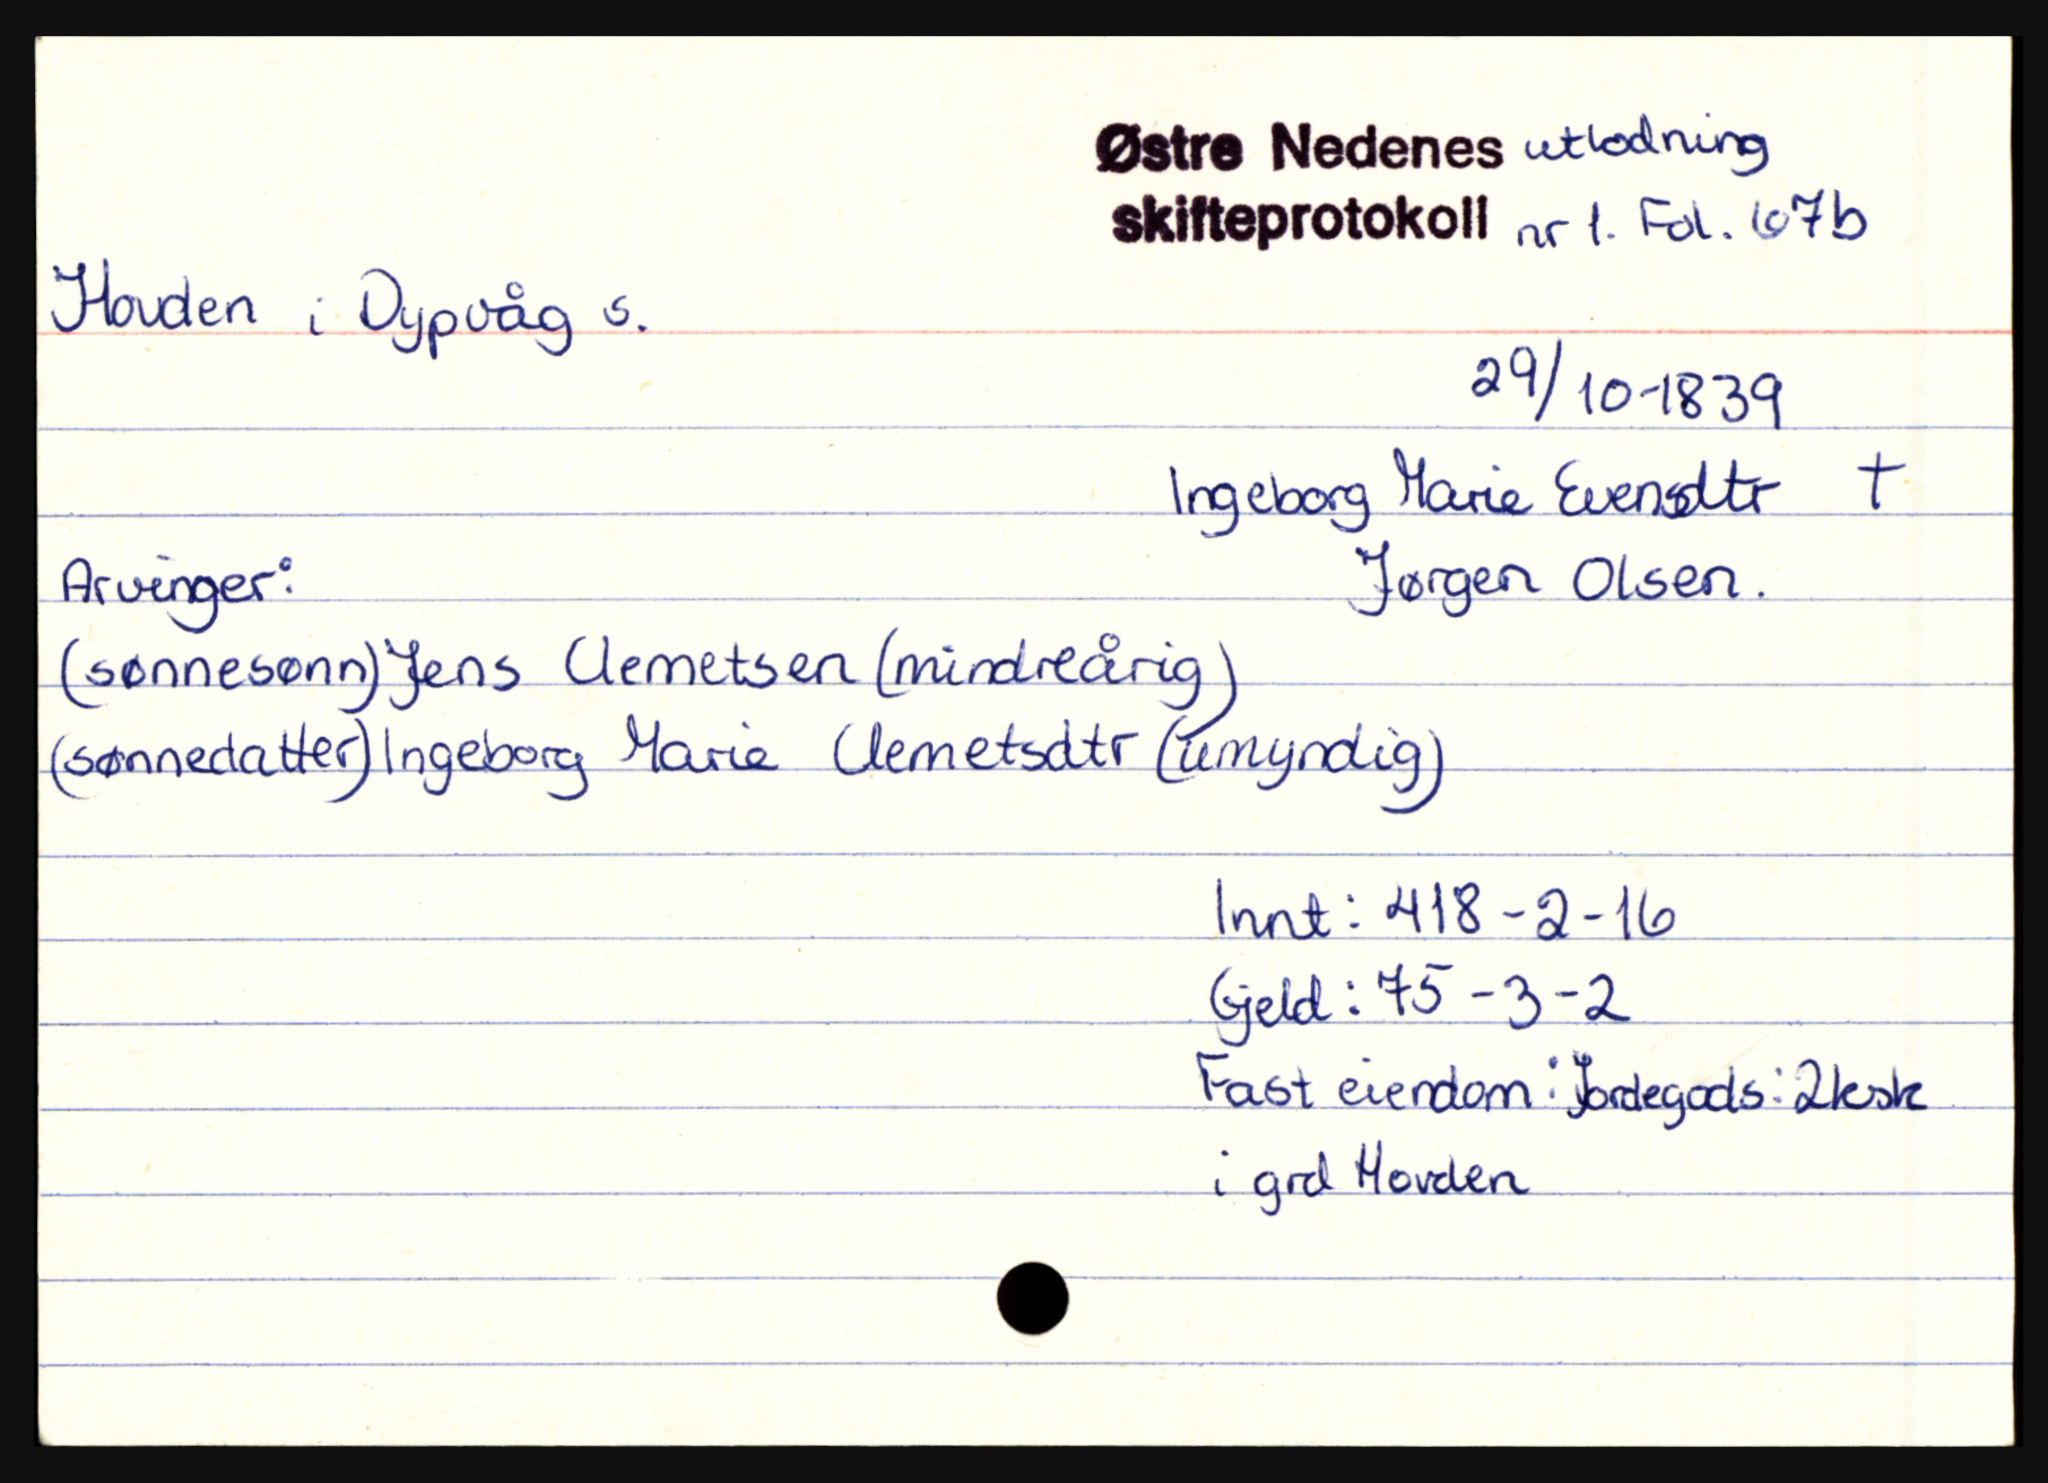 Østre Nedenes utlodning
skifteprotokoll nr 1. Fol. 67b
Hovden i Dypvåg s.
29/10-1839
Ingeborg Marie Evensdtr †
Arvinger: Jørgen Olsen.
(sønnesønn) Jens Clemetsen (mindreårig)
(sønnedatter) Ingeborg Marie Clemetsdtr (umyndig)
Innt: 418-2-16
Gjeld: 75-3-2
Fast eiendom: Jordegods: 2 ksk
i grd Hovden